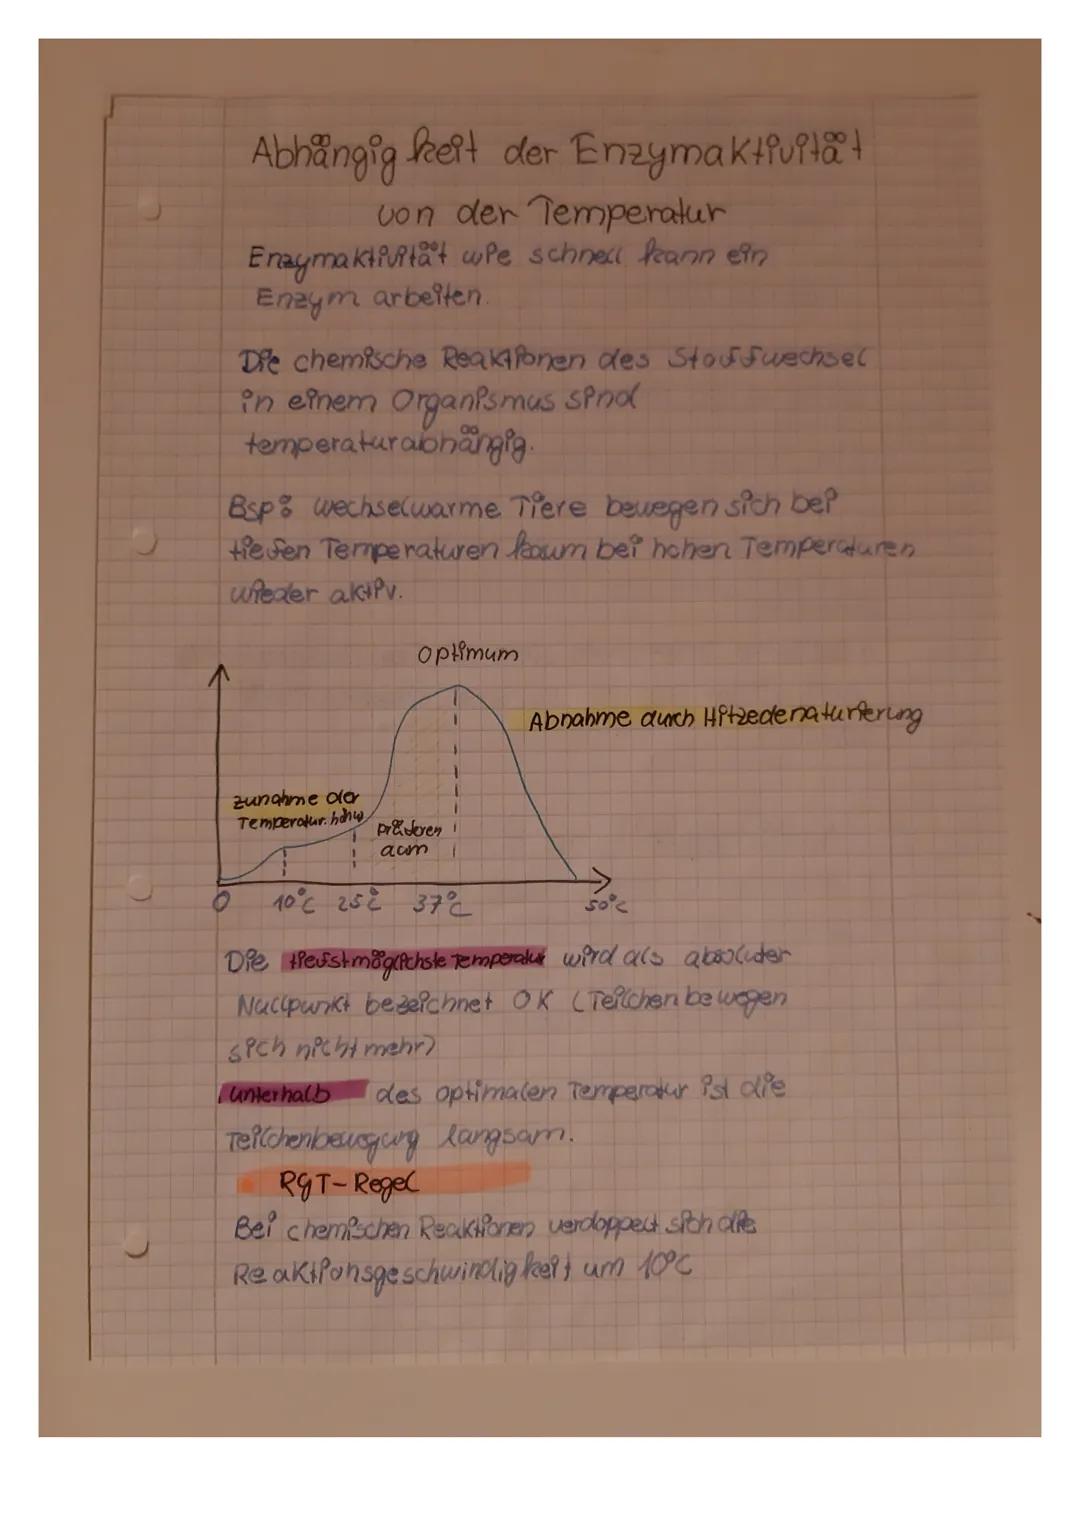 Abhängigkeit der Enzymaktivität
von der Temperatur
Enzymaktivität wie schnell kann ein
Enzym arbeiten.
Die chemische Reaktionen des Stoffwechsel
in einem Organismus sind
temperaturabhängig.
Bsp: wechselwarme Tiere bewegen sich bei
tiefen Temperaturen kaum bei hohen Temperaturen
wieder aktiv.
Optimum
Abnahme durch Hitzedenaturierung
Zunahme der
Temperatur.
Präferen
0 10°C 25°C 37°C 50°C
Die tiefstmöglichste Temperatur wird als absoluter
Nullpunkt bezeichnet 0K (Teilchen bewegen
sich nicht mehr)
unterhalb des optimalen Temperatur ist die
Teilchenbewegung langsam.
RGT-Regel
Bei chemischen Reaktionen verdoppelt sich die
Reaktionsgeschwindigkeit um 10°C